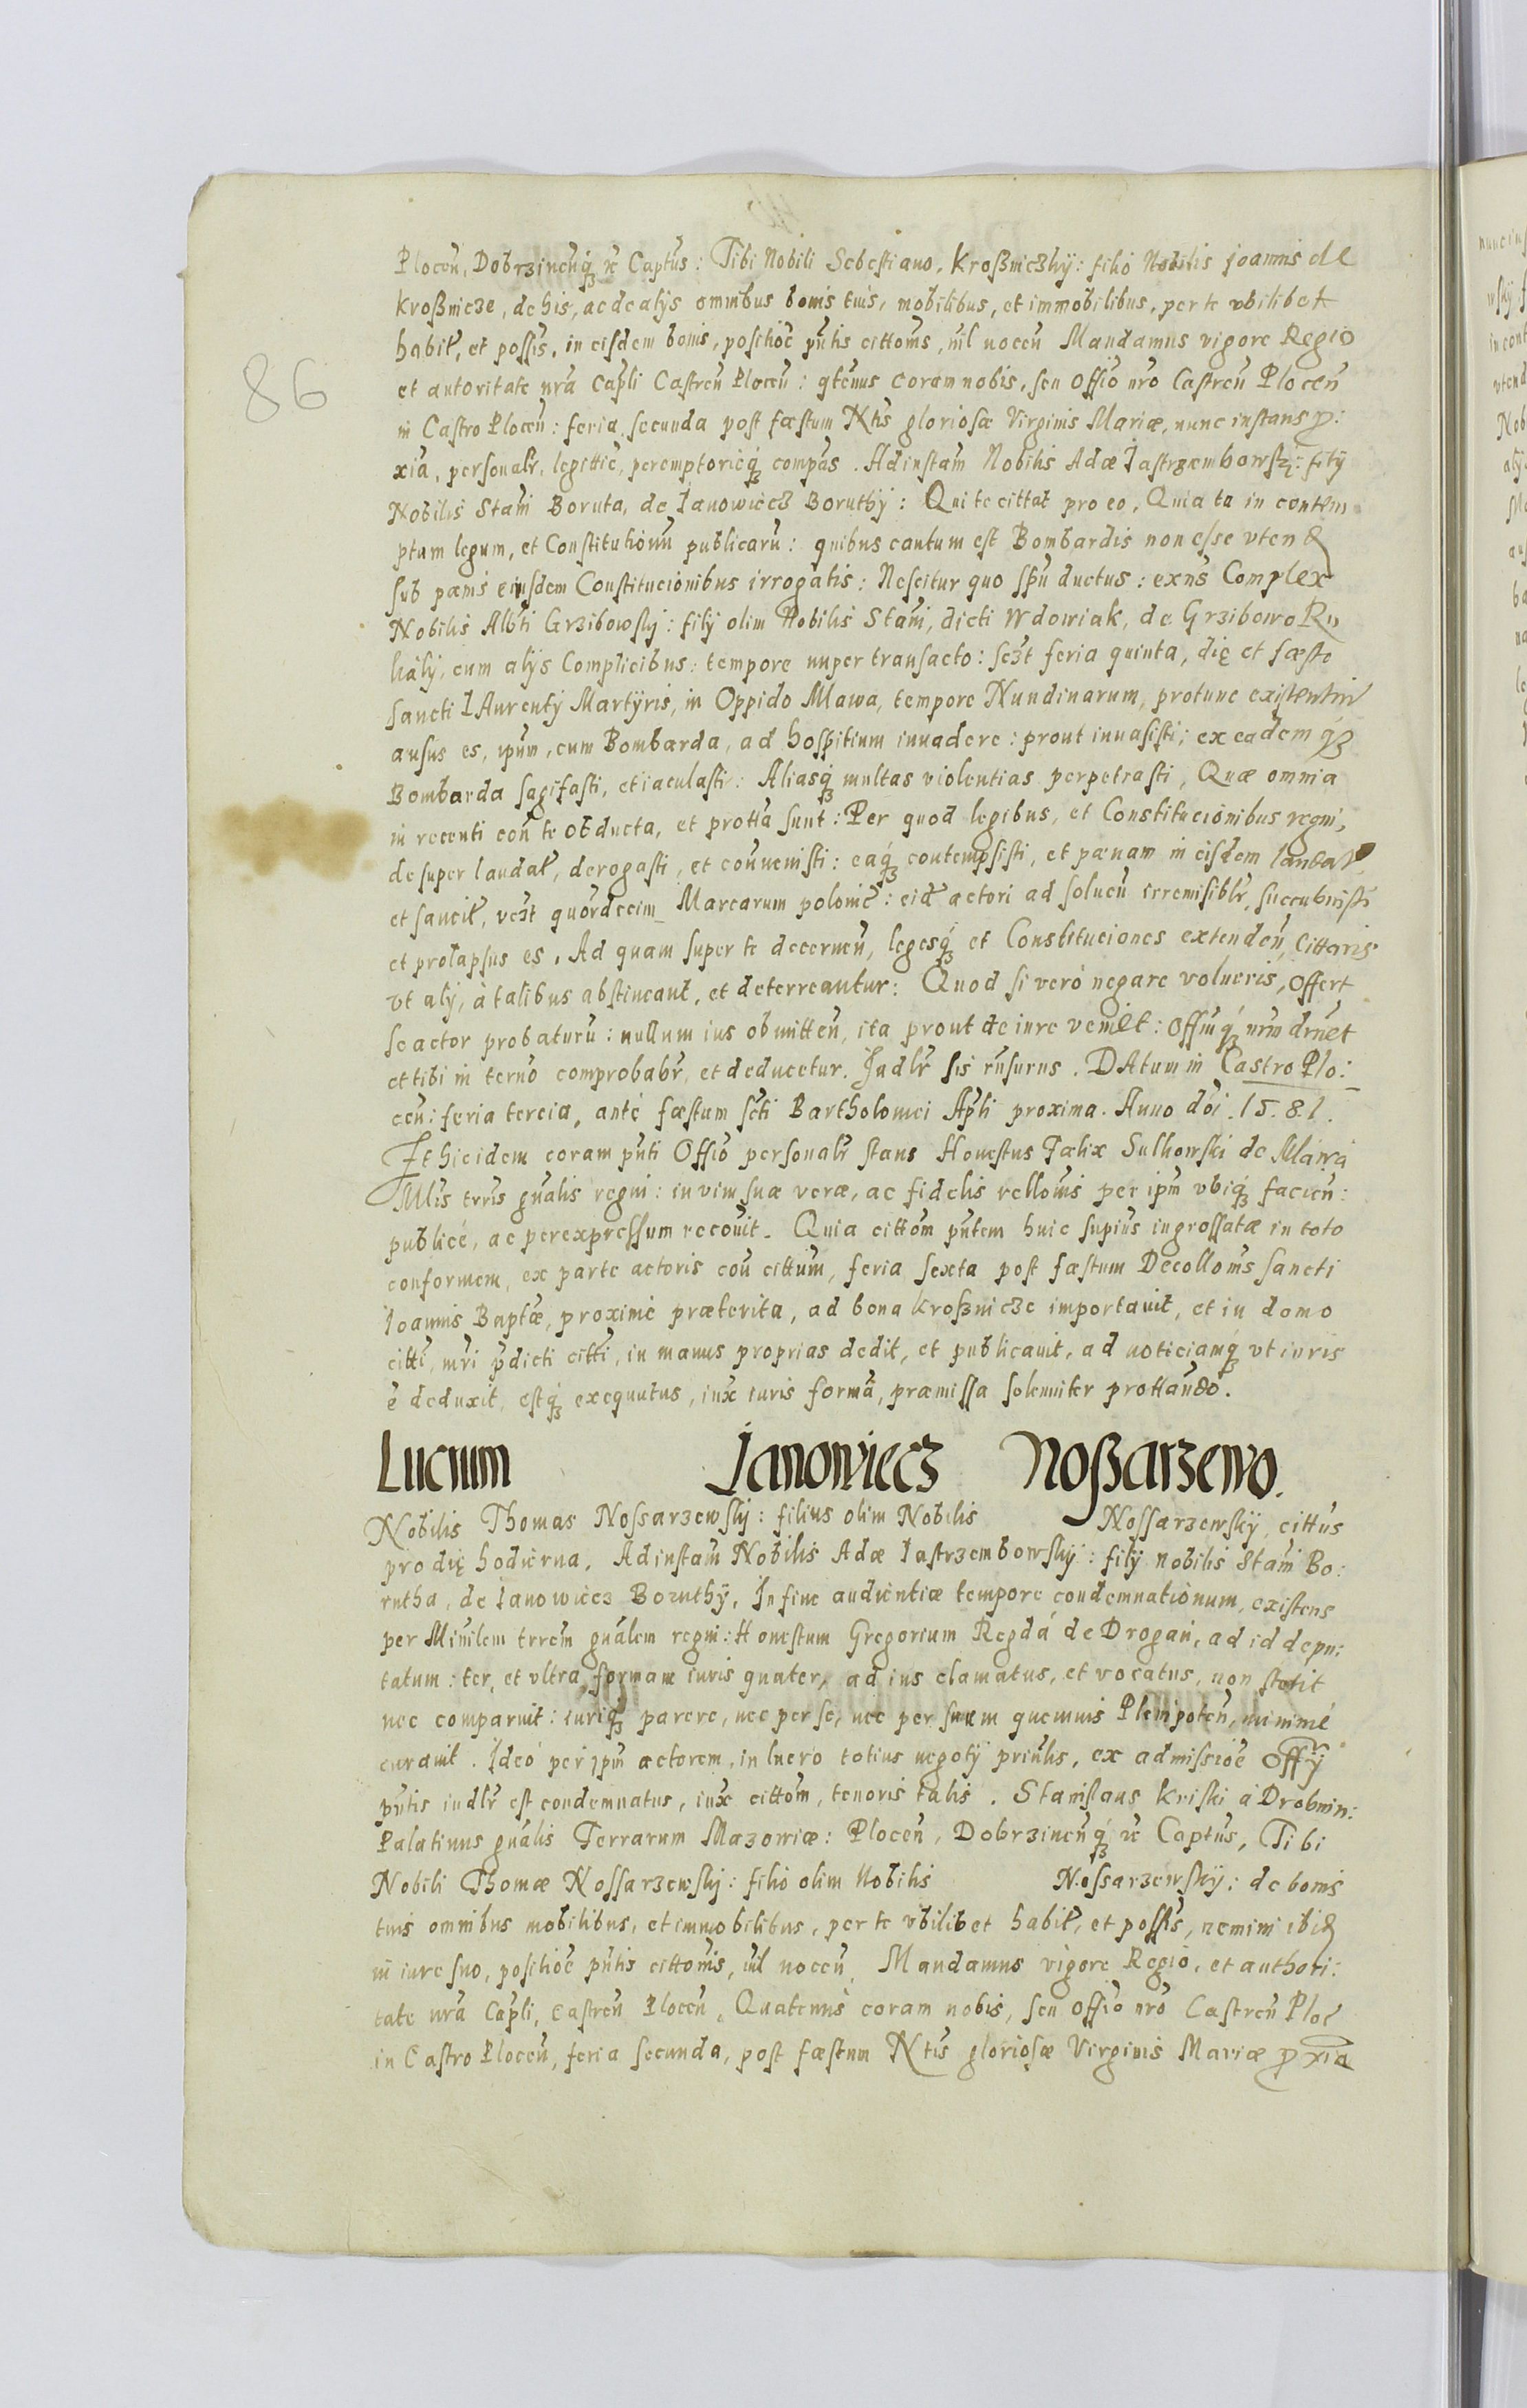 86
Plocen̄, Dobrzincn̄q́ʒ ꝛc Captus: Tibi Nobili Sebestiano, Kroßniczkÿ: filio Nobilis Joannis de
Kroßnicze, de his, ac de alÿs omnibus bonis tuis, mobilibus, et immobilibus, per te vbilibet
habit, et possis, in eisdem bonis, positioē pn̄tis cittonis, nil nocen̄ Mandamus vigore Regio
et autoritate nr̄a Capli Castren̄ Plocen̄: qtenus coram nobis, seu Offio nr̄o Castren̄ Plocen̄
in Castro Plocen̄: feria secunda post fæstum Ntis gloriosæ Virginis Mariæ, nunc instans p:
xia, personalr, legittie, peremptorieq́ʒ compas. Ad instam Nobilis Adæ Jastrzembowskÿ: filÿ
Nobilis Stani Boruta, de Janowiecz Boruthÿ: Qui te cittat pro eo, Quia tu in contem
ptum legum, et Constitutionū publicarū: quibus cautum est Bombardis non esse vtend
sub pænis eiusdem Constitucionibus irrogatis: Nescitur quo spū ductus: exn̄s Complex
Nobilis Albti Grzibowskj: filÿ olim Nobilis Stani, dicti Wdowiak, de Grzibowo Ru
haly, cum alÿs Complicibus: tempore nuper transacto: sczt feria quinta, die et fæsto
Sancti LAurentÿ Martÿris, in Oppido Mawa, tempore Nundinarum, protunc existentiu
ausus es, ipum, cum Bombarda, ad hospitium inuadere: prout inuasisti; ex eademq́ʒ
Bombarda sagitasti, et iaculasti: Aliasq́ʒ multas violentias perpetrasti, Quæ omnia
in recenti con̄ te obducta, et protta sunt: Per quod legibus, et Constitucionibus regni,
desuper laudat, derogasti, et conuenisti: eaq́ʒ contempsisti, et pænam in eisdem laudat
et sancit, vczt quordecim Marcarum polonic: eid actori ad solucn̄ irremisiblr, succubuisti
et prolapsus es, Ad quam super te decernen̄, legesq́ʒ et Constituciones extenden̄, Cittaris
vt alÿ, à talibus abstineant, et deterreantur: Quod si verò negare volueris, Offert
se actor probaturū: nullum ius obmitten̄, ita prout de iure veniet: Offmq́ʒ nrm drnet
et tibi in term̄o comprobabr, et deducetur. Judlr sis rn̄surus. DAtum in Castro Plo:
cen: feria tercia, ante fæstum scti Bartholomei Apli proxima. Anno doi. 15.81.
Et hic idem coram pn̄ti Offio personalr stans Honestus Fælix Sulkowski de Mawa
Mlis trris gn̄alis regni: in vim suæ veræ, ac fidelis rellonis per ipm vbiq́ʒ facien:
publicé, ac per expressum recouit. Quia cittom pn̄tem huic supius ingrossatæ in toto
conformem, ex parte actoris con̄ cittum, feria sexta post fæstum Decollonis Sancti
Joannis Baptæ, proximé præterita, ad bona Kroßnicze importauit, et in domo
citti, nr̄i pdicti citti, in manus proprias dedit, et publicauit, ad noticiamq́ʒ vt iuris
e deduxit, estq́ʒ exequutus, iux iuris formā, præmissa solenniter prottando.
Lucrum Janowiecz Noßarzewo.
Nobilis Thomas Nossarzewskÿ: filius olim Nobilis Nossarzewskÿ, cittus
pro die hodierna, Ad instam Nobilis Adæ Jastrzembowskÿ: filÿ nobilis Stani Bo:
rutha, de Janowiecz Boruthÿ, In fine audientiæ tempore condemnationum, existens
per Minilem trrem gn̄alem regni: Honestum Gregorium Regdá de Drogan, ad id depu:
tatum: ter, et vltra formam iuris quater, ad ius clamatus, et vocatus, non stetit
nec comparuit: iuriq́ʒ parere, nec per se, nec per suum quemuis Plenipoten̄, minimé
curauit. Ideó per ipm actorem, in lucro totius negotÿ princlis, ex admissioē Offÿ
pn̄tis iudlr est condemnatus, iux cittom, tenoris talis. Stanislaus Kriski à Drobnin:
Palatinus gn̄alis Terrarum Mazowiæ: Plocen̄, Dobrzincn̄q́ʒ ꝛc Captus, Tibi
Nobili Thomæ Nossarzewskj: filio olim Nobilis Nossarzewskÿ: de bonis
tuis omnibus mobilibus, et immobilibus, per te vbilibet habit, et possis, nemini ibid
in iure suo, positioē pn̄tis cittonis, nil nocen̄, Mandamus vigore Regio, et authori:
tate nr̄a Capli, Castren̄ Plocen̄, Quatenus coram nobis, seu Offio nr̄o Castren̄ Ploc
in Castro Plocen̄, feria secunda, post fæstum Ntis gloriosæ Virginis Mariæ pxia